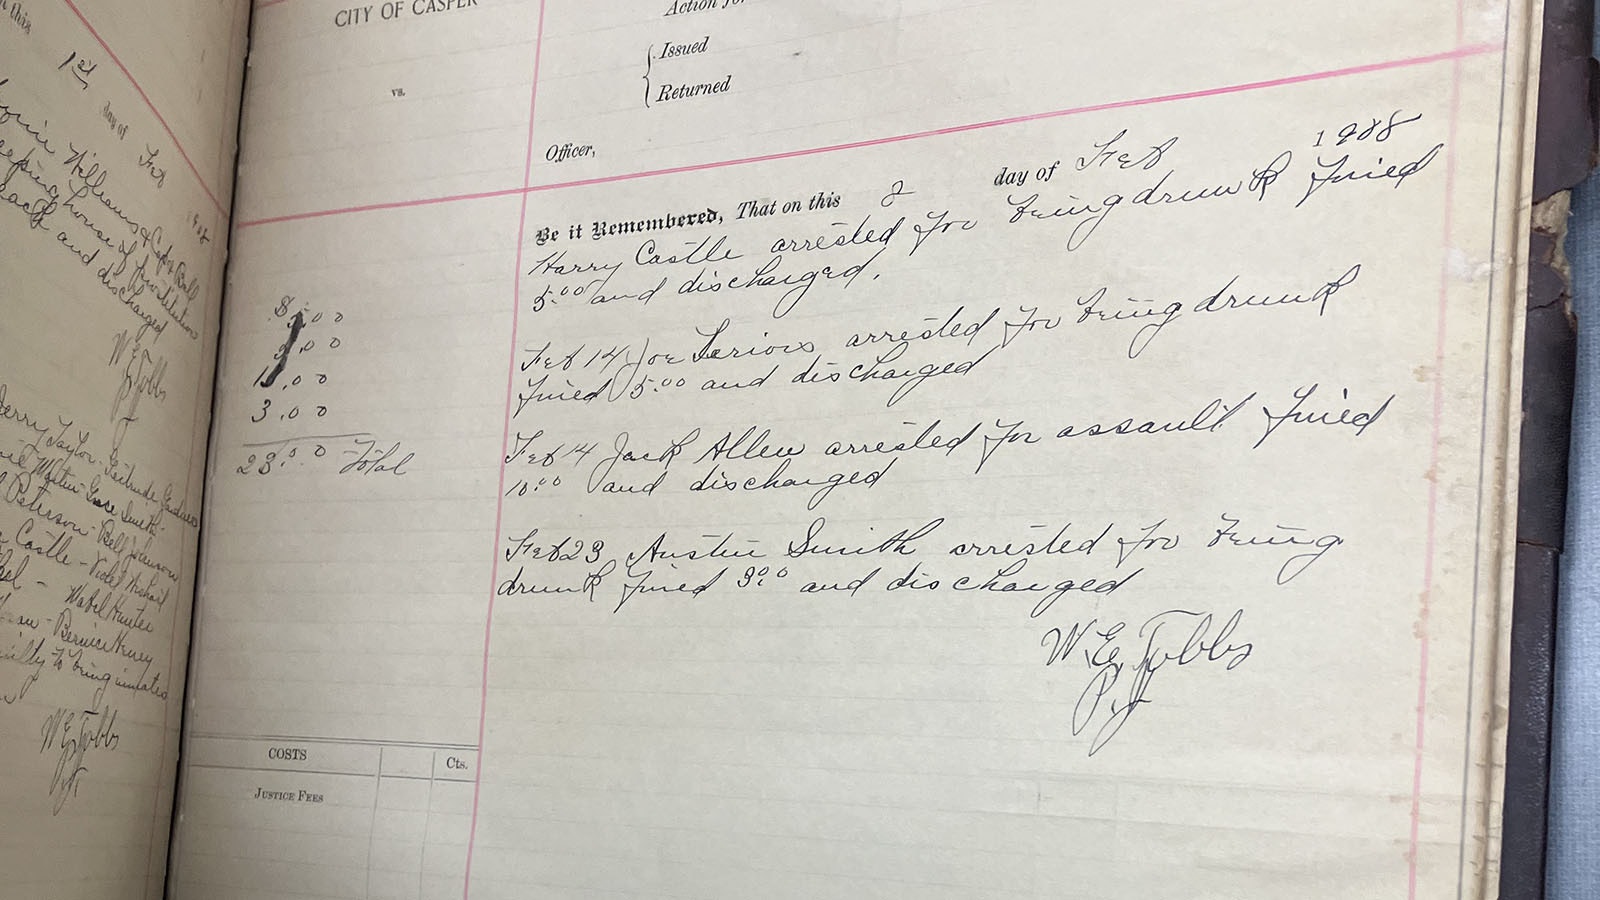 n this
1st
day of Feb
Williams & Capt Ball
keeping house of prostitution
each and discharged
W E Tubbs
P J
Jerry Taylor Gertrude
Grace Smith
Peterson - Bell Johnson
Castle - Violet
Mabel Hunter
Bernice Henry
guilty to being inmates
W E Tubbs
P J
CITY OF CASPER
vs.
Action for
Issued
Returned
Officer,
Be it Remembered, That on this 2 day of Feb 1908
Harry Castle arrested for being drunk fined
5.00 and discharged.
Feb 14 Joe arrested for being drunk
fined 5.00 and discharged
Feb 14 Jack Allen arrested for assault fined
10.00 and discharged
Feb 23 Austin Smith arrested for being
drunk fined 3.00 and discharged
W. E. Tubbs
P. J
$5.00
5.00
10.00
3.00
23.00 Total
COSTS Cts.
JUSTICE FEES